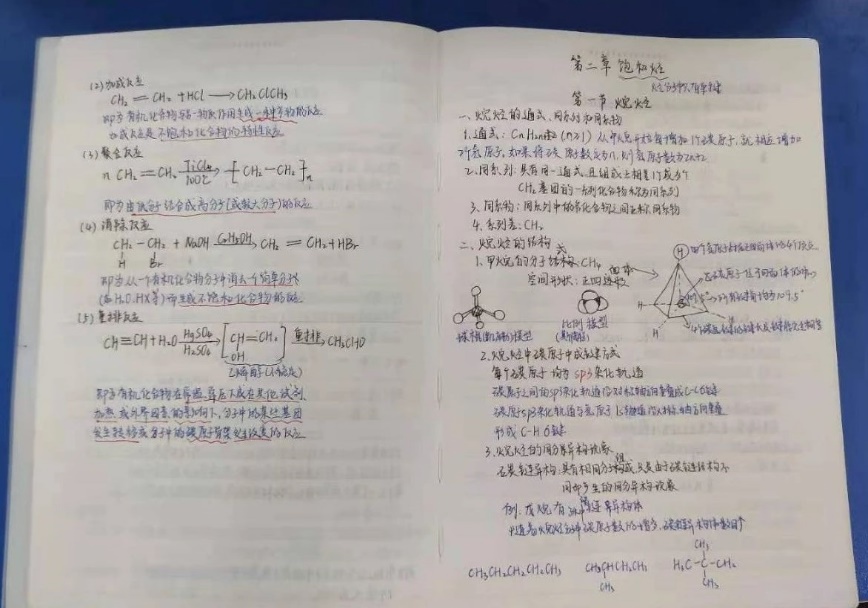 (2) 加成反应
CH₂=CH₂+HCl→CH₃ClCH₃
即为有机化合物与另一物质作用生成一种产物的反应
加成反应是不饱和化合物的特性反应
(3) 聚合反应
n CH₂=CH₂ TiCl₄ 100℃ [CH₂-CH₂]n
即为由低分子结合成高分子(或较大分子)的反应
(4) 消除反应
CH₂-CH₂+NaOH C₂H₅OH CH₂=CH₂+HBr
H Br
即为从一个有机化合物分子中消去一个简单分子
(如H₂O.HX等)而生成不饱和化合物的反应
(5) 重排反应
CH≡CH+H₂O HgSO₄ H₂SO₄ [CH=CH₂ OH] 重排 CH₃CHO
乙烯醇(不稳定)
即为有机化合物在
加热或外界因素的影响下,分子中的某些基团
发生转移或分子中的碳原子骨架发生改变的反应
第二章 饱和烃
第一节 烷烃
一、烷烃的通式、同系列和同系物
1. 通式: CnH2n+2(n≥1) 从甲烷开始每增加1个碳原子,就相应增加
2个氢原子,如果将碳原子数定为n,则氢原子数为2n+2
2. 同系列: 具有同一通式,且组成上相差1个或多个
CH₂基团的一系列化合物称为同系列
3. 同系物: 同系列中的各化合物之间互称同系物
4. 系列差: CH₂
二、烷烃的结构
1. 甲烷的分子结构式 CH₄
空间形状: 正四面体
H
H
球棍模型
比例模型
2. 烷烃中碳原子中成键方式
每个碳原子均为sp3杂化轨道
碳原子之间的sp3杂化轨道沿对称轴方向重叠成C-Cσ键
碳原子sp3杂化轨道与氢原子1s轨道沿对称轴方向重叠
形成C-Hσ键
3. 烷烃的同分异构现象
碳链异构: 具有相同分子组成,只是由于碳链结构不
同而产生的同分异构现象
例. 戊烷有3种碳链异构体
随着烷烃分子中碳原子数的增多,碳链异构体数目↑
CH₃CH₂CH₂CH₂CH₃ CH₃CHCH₂CH₃ H₃C-C-CH₃
CH₃ CH₃ CH₃